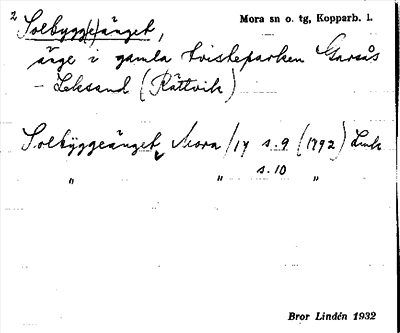 2 Solbygg(e)änget, Mora sn o. tg, Kopparb. l.
änge i gamla tvisteparken Garsås
- Leksand (Rättvik)
Solbyggeänget, Mora /17 s. 9 (1792) Lmk
" " s. 10 "
Bror Lindén 1932